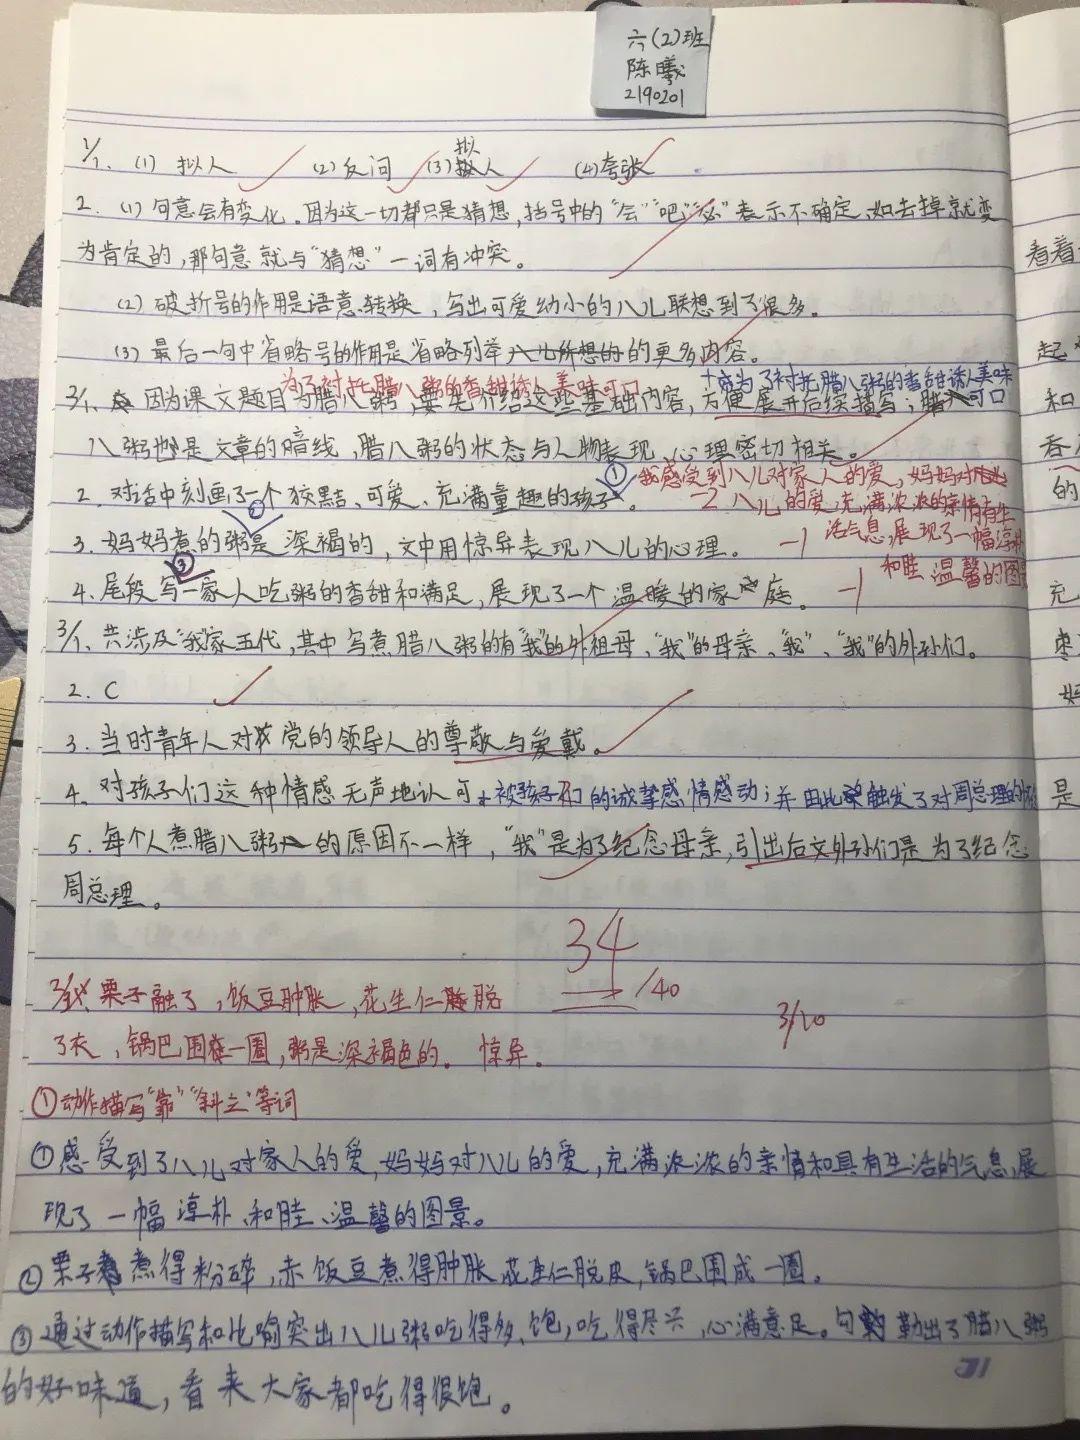 六(2)班
陈曦
2190201
1/1. (1) 拟人 (2) 反问 (3) 拟人 (4) 夸张
2. (1) 句意会有变化。因为这一切都只是猜想,括号中的“会”“吧”“必”表示不确定,如去掉就变
为肯定的,那句意就与“猜想”一词有冲突。
(2) 破折号的作用是语意转换,写出可爱幼小的八儿联想到了很多。
(3) 最后一句中省略号的作用是省略列举的更多内容。
为了衬托腊八粥的香甜诱人美味可口
+或为了衬托腊八粥的香甜诱人美味
可口
3/1. 因为课文题目为腊八粥,要先介绍这些基础内容,方便展开后续描写;腊
八粥也是文章的暗线,腊八粥的状态与人物表现、心理密切相关。
2. 对话中刻画了一个狡黠、可爱、充满童趣的孩子。
① 我感受到八儿对家人的爱,妈妈对
-2 八儿的爱,充满浓浓的亲情有生
活气息,展现了一幅淳朴
和睦 温馨的图景
② 3. 妈妈煮的粥是深褐的,文中用惊异表现八儿的心理。 -1
③ 4. 尾段写一家人吃粥的香甜和满足,展现了一个温暖的家庭。 -1
3/1. 共涉及“我”家五代,其中写煮腊八粥的有“我”的外祖母、“我”的母亲、“我”、“我”的外孙们。
2. C
3. 当时青年人对我党的领导人的尊敬与爱戴。
4. 对孩子们这种情感无声地认可+被孩子们的诚挚感情感动;并由此触发了对周总理的
5. 每个人煮腊八粥的原因不一样,“我”是为了纪念母亲,引出后文外孙们是为了纪念
周总理。
34/40
3/20
栗子融了,饭豆肿胀,花生仁脱
了衣,锅巴围在一圈,粥是深褐色的。惊异。
①动作描写“靠”“斜立”等词
①感受到了八儿对家人的爱,妈妈对八儿的爱,充满浓浓的亲情和具有生活的气息,展
现了一幅淳朴、和睦、温馨的图景。
②栗子煮得粉碎,赤饭豆煮得肿胀,花生仁脱皮,锅巴围成一圈。
③通过动作描写和比喻突出八儿粥吃得多、饱,吃得尽兴,心满意足。勾勒出了腊八粥
的好味道,看来大家都吃得很饱。
31
看着
起
和
吞
的
充
枣
妈
是